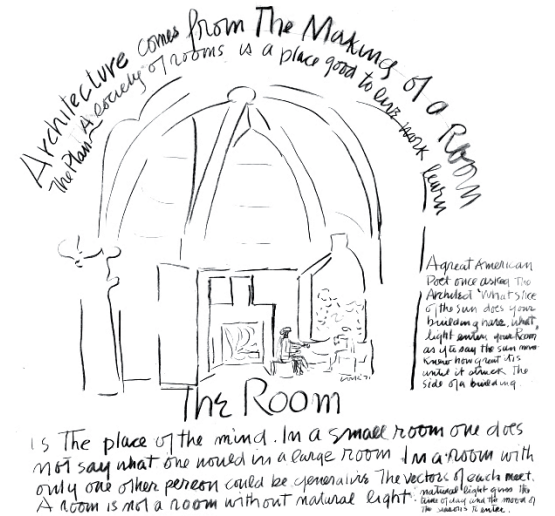 Architecture comes from The Making of a Room
The Plan A society of rooms is a place good to live work learn
A great American
Poet once asked the
Architect 'What slice
of the sun does your
building have, what
light enters your Room
as if to say the sun never
knew how great it is
until it struck the
side of a building.
The Room
is the place of the mind. In a small room one does
not say what one would in a large room. In a room with
only one other person could be generative. The vectors of each meet.
A room is not a room without natural light.
natural light gives the
time of day and the mood of
the seasons to enter.